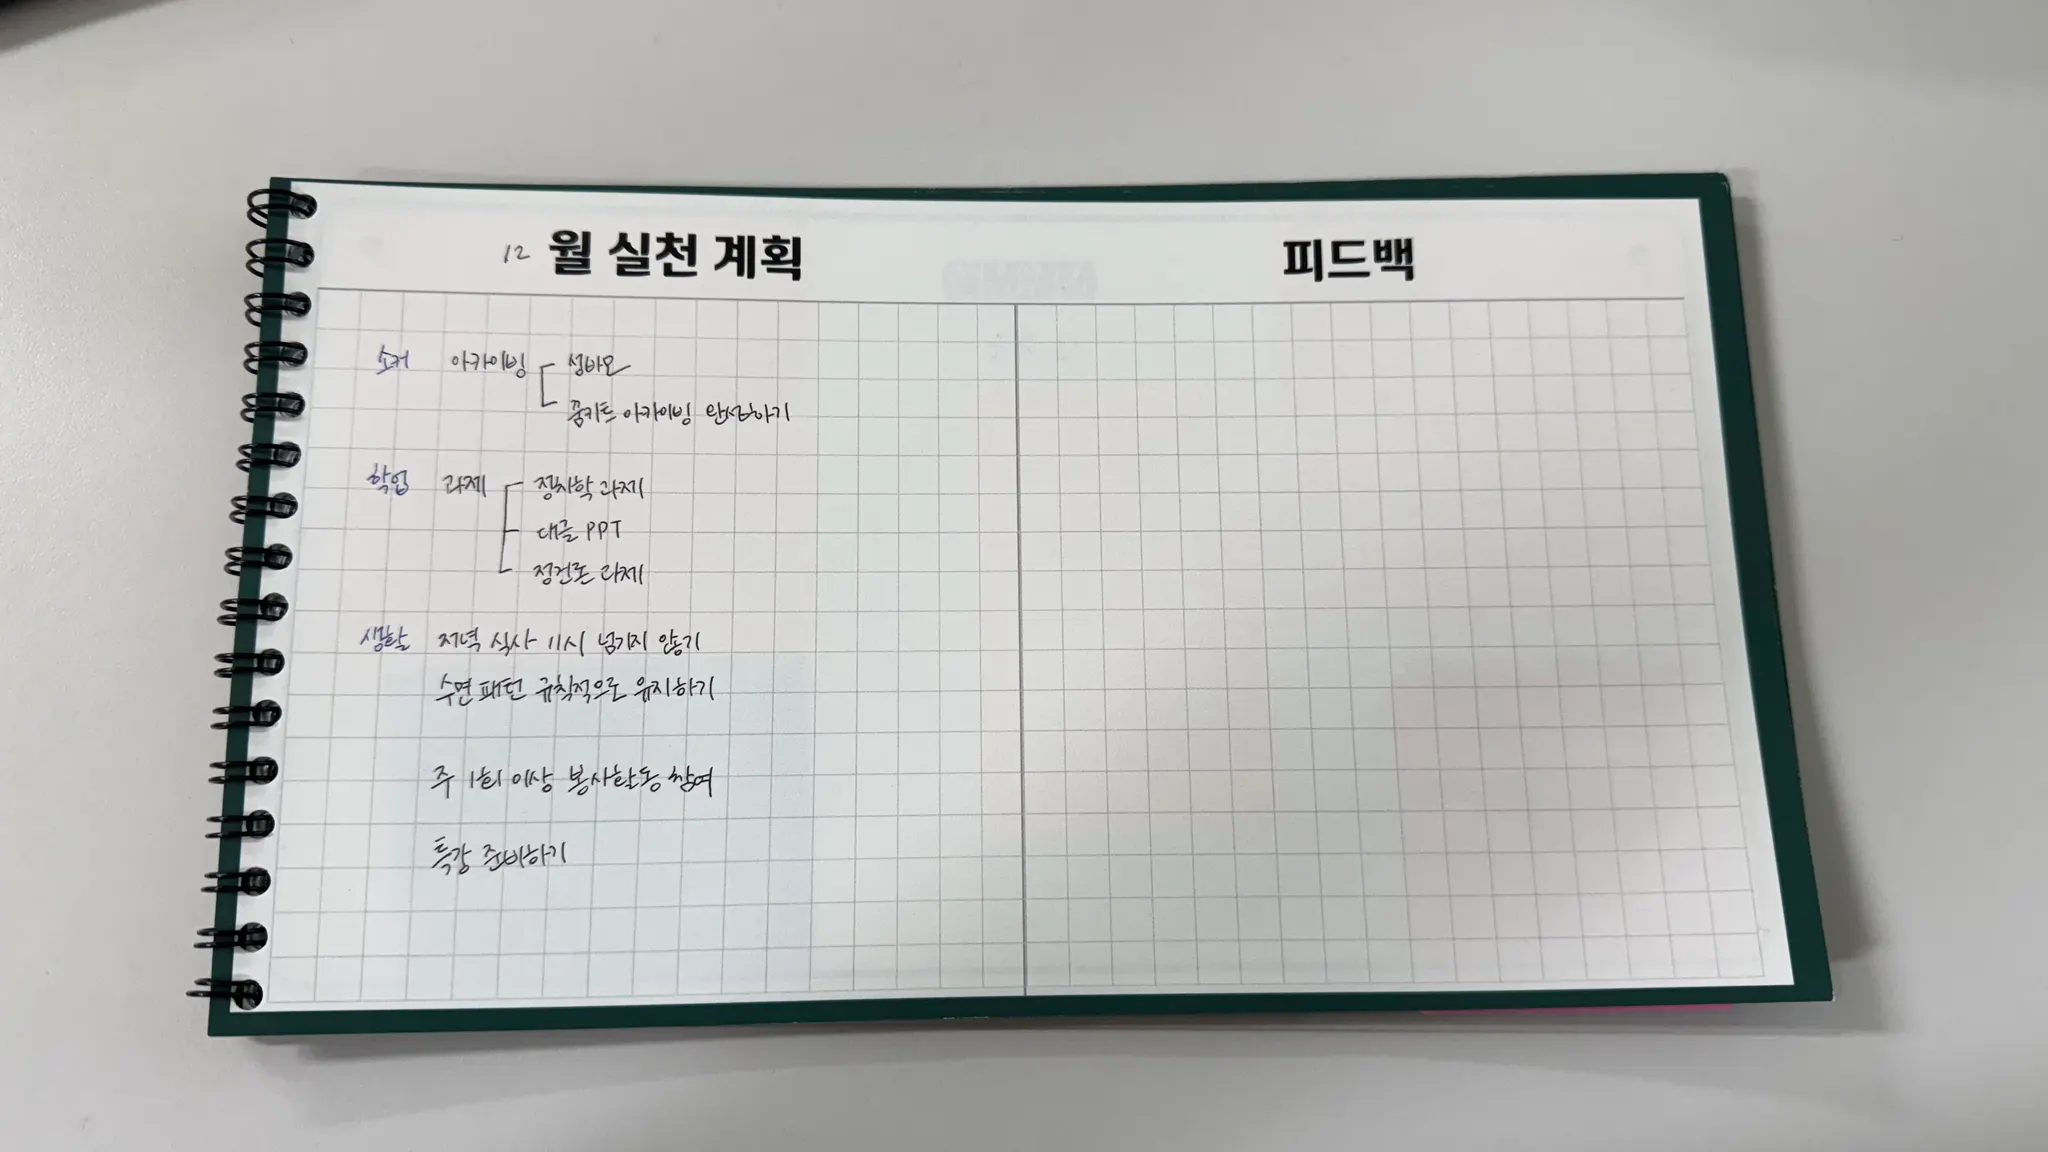 12월 실천 계획
피드백
소거 아카이빙 섬바오
꿈키트 아카이빙 완성하기
학업 과제 정치학 과제
대글 PPT
정건론 과제
생활 저녁 식사 11시 넘기지 않기
수면 패턴 규칙적으로 유지하기
주 1회 이상 봉사활동 참여
특강 준비하기